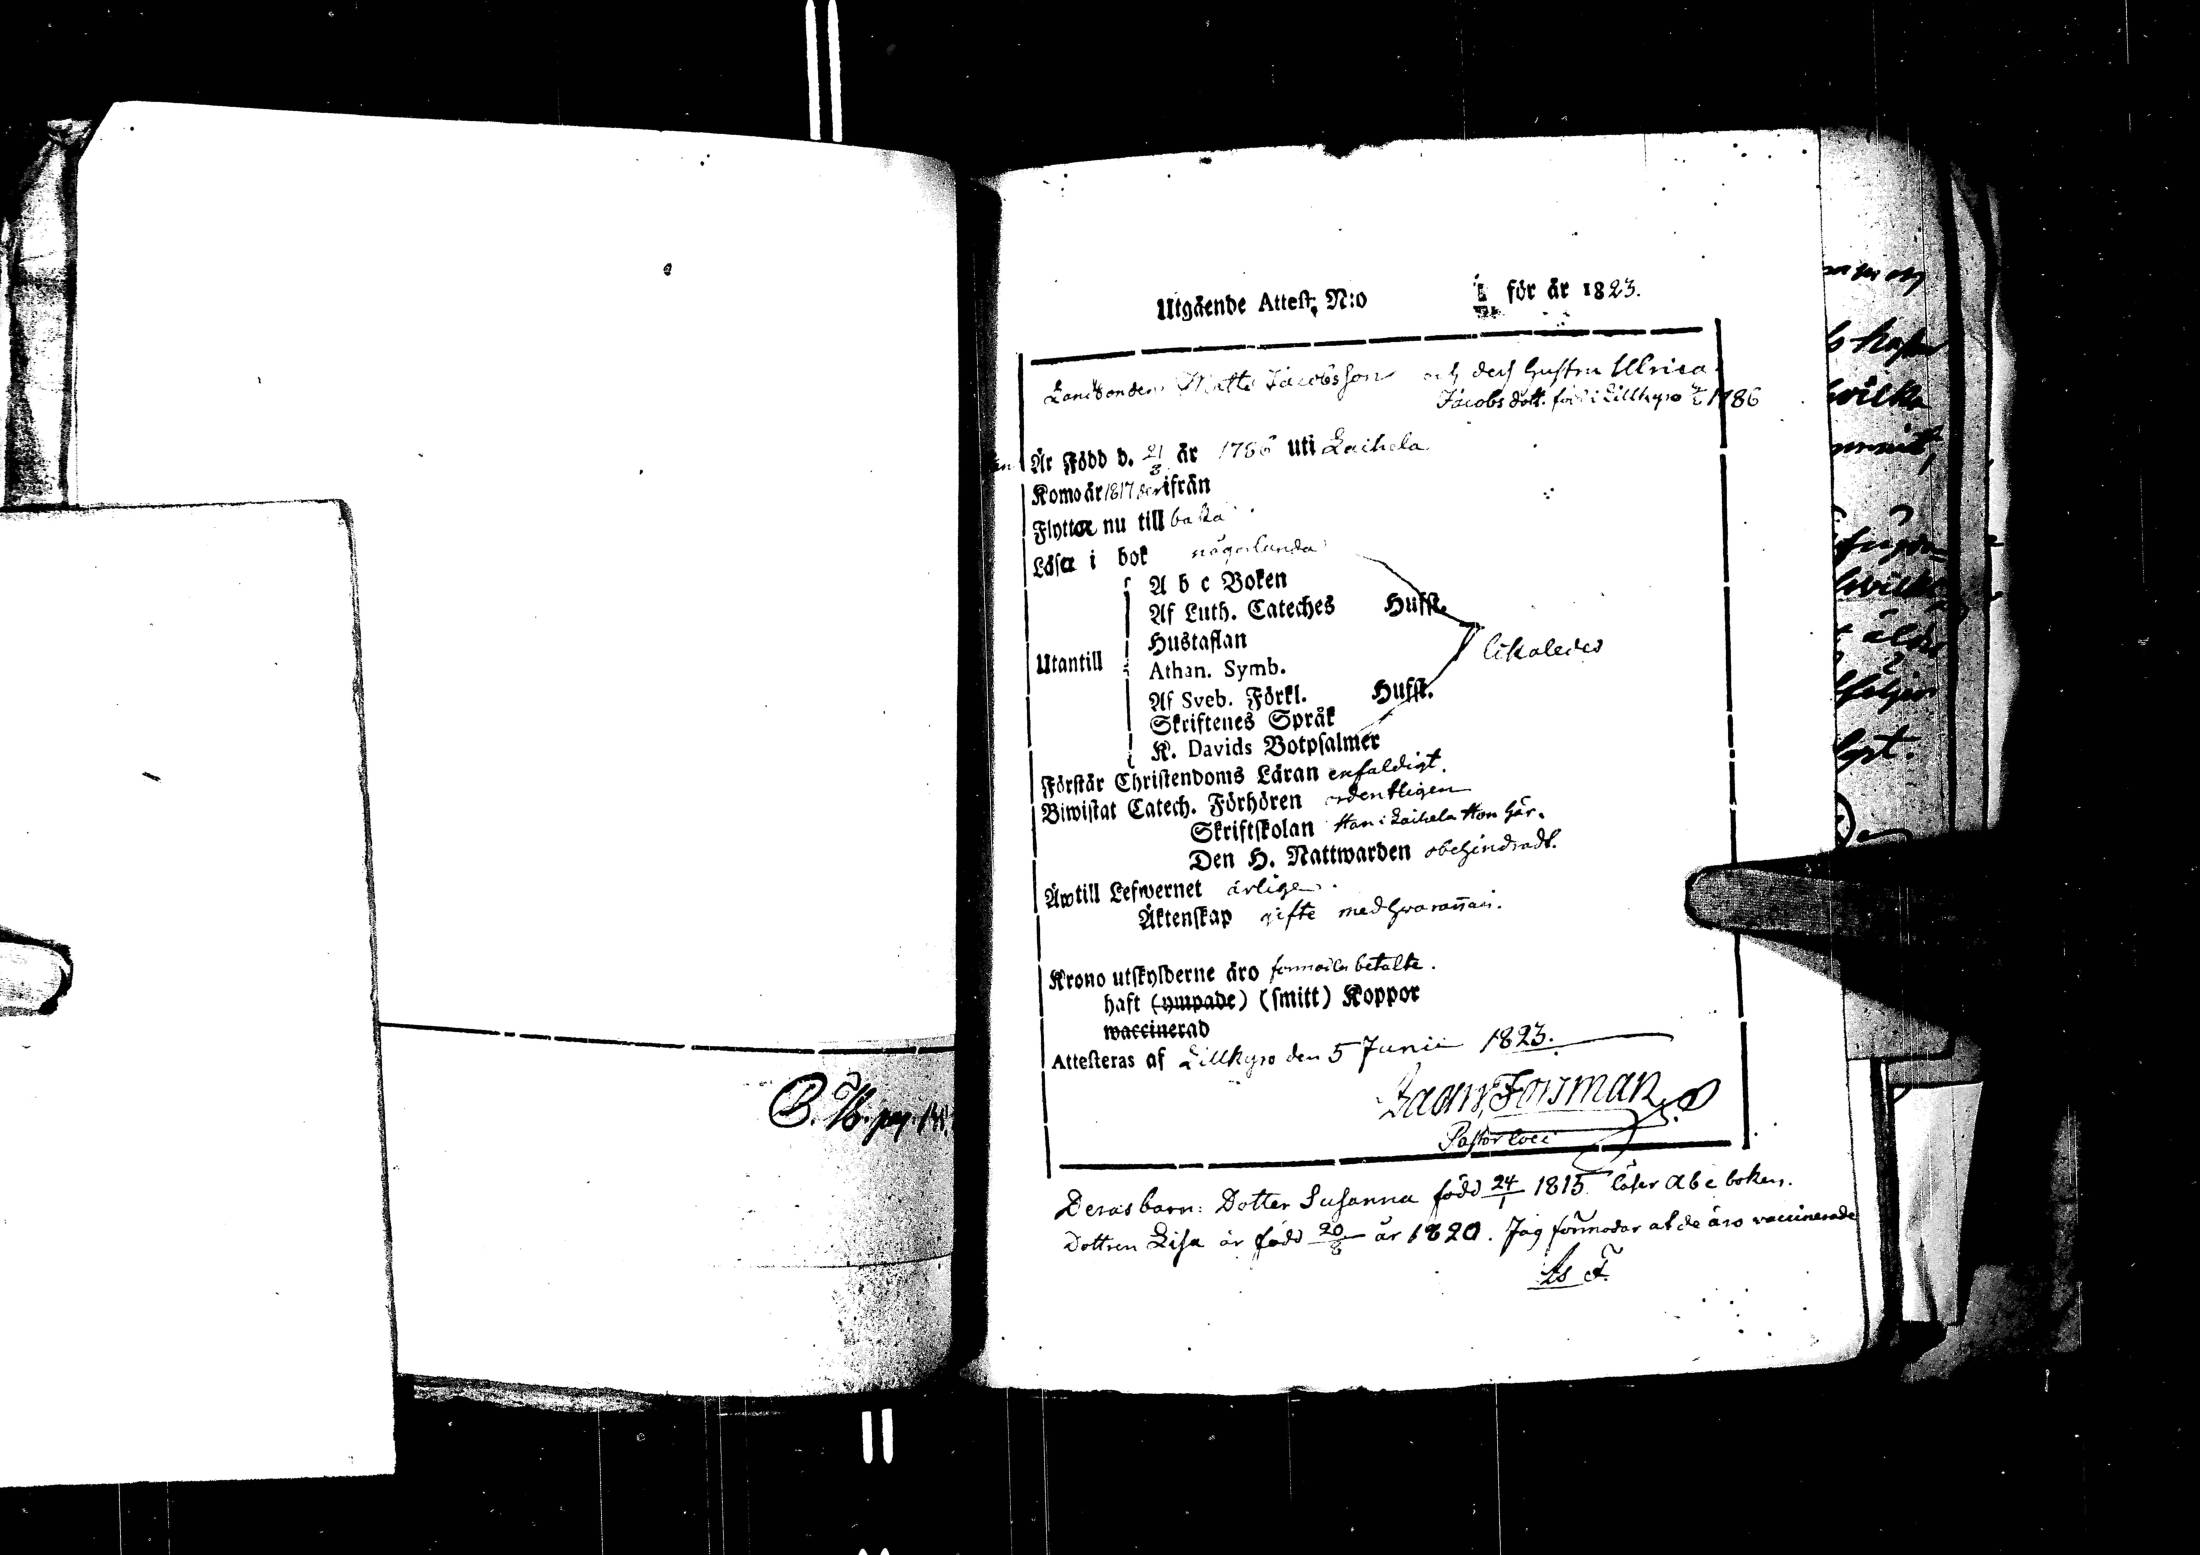 B. K. pag. 141.
Utgående Attest, N:o för år 1823.
Landbonden Matts Jacobsson och des hustru Ulrica
Jacobsdott. född i Lillkyro 1786
Är Född d. 21/8 år 1786 uti Laihela
Kom år 1817 derifrån
Flytta nu till baka
Läsa i bok någorlunda
A b c Boken
Af Luth. Cateches Hufst.
Hustaflan
Utantill
Athan. Symb.
likaledes
Af Sveb. Förkl. Hufst.
Skriftenes Språk
K. Davids Botpsalmer
Förstår Christendoms Läran enfaldigt.
Biwistat Catech. Förhören ordentligen
Skriftskolan Han i Laihela Hon här.
Den H. Nattwarden obehindradt.
Äro till Lefwernet ärliga.
Äktenskap gifte med hvarannan.
Krono utskylderne äro betalte.
haft (ympade) (smitt) Koppor
waccinerad
Attesteras af Lillkyro den 5 Junii 1823.
Forsman
Pastor loci
Deras barn: Dotter Susanna född 24/1 1815 läser Abc boken.
Dottren Lisa är född 20/8 år 1820. Jag förmodar at de äro vaccinerade